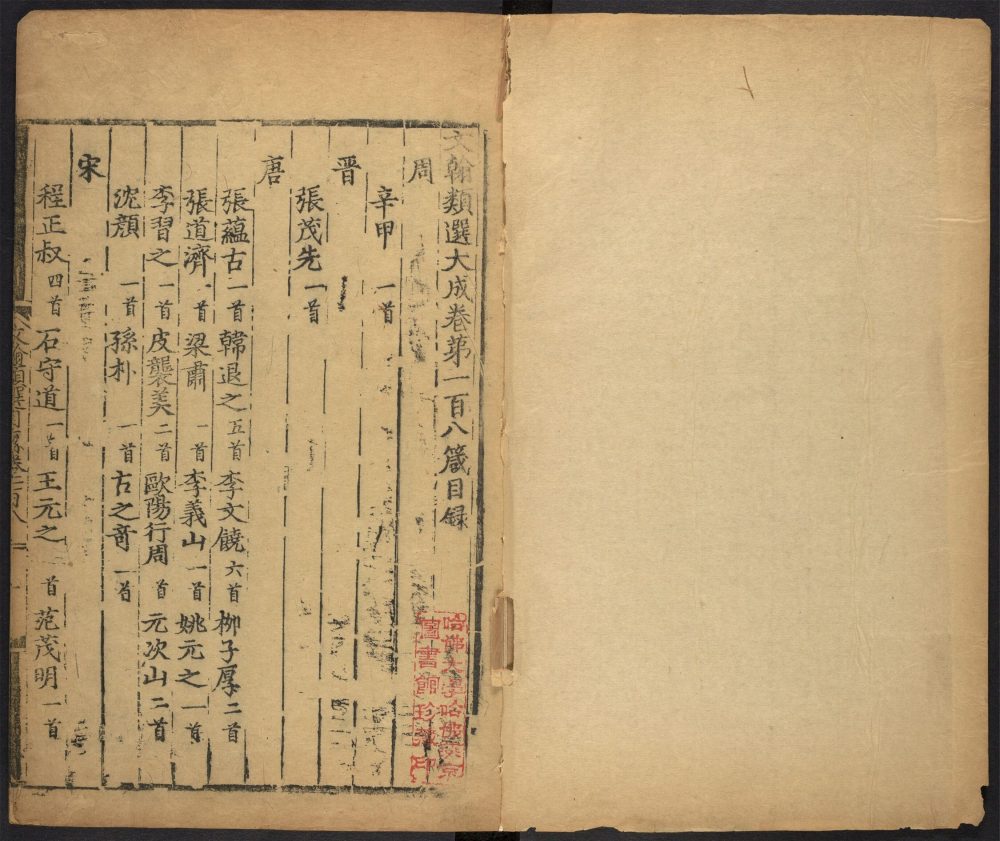 文翰類選大成卷第一百八箴目録
周
辛甲 一首
晋
張茂先 一首
唐
張蘊古 一首 韓退之 五首 李文饒 六首 柳子厚 二首
張道濟 一首 梁肅 一首 李義山 一首 姚元之 一首
李習之 一首 皮襲美 二首 歐陽行周 首 元次山 二首
沈顏 一首 孫朴 一首 古之奇 一首
宋
程正叔 四首 石守道 一首 王元之 首 范茂明 一首
哈佛大學哈佛燕京
圖書館珍藏印